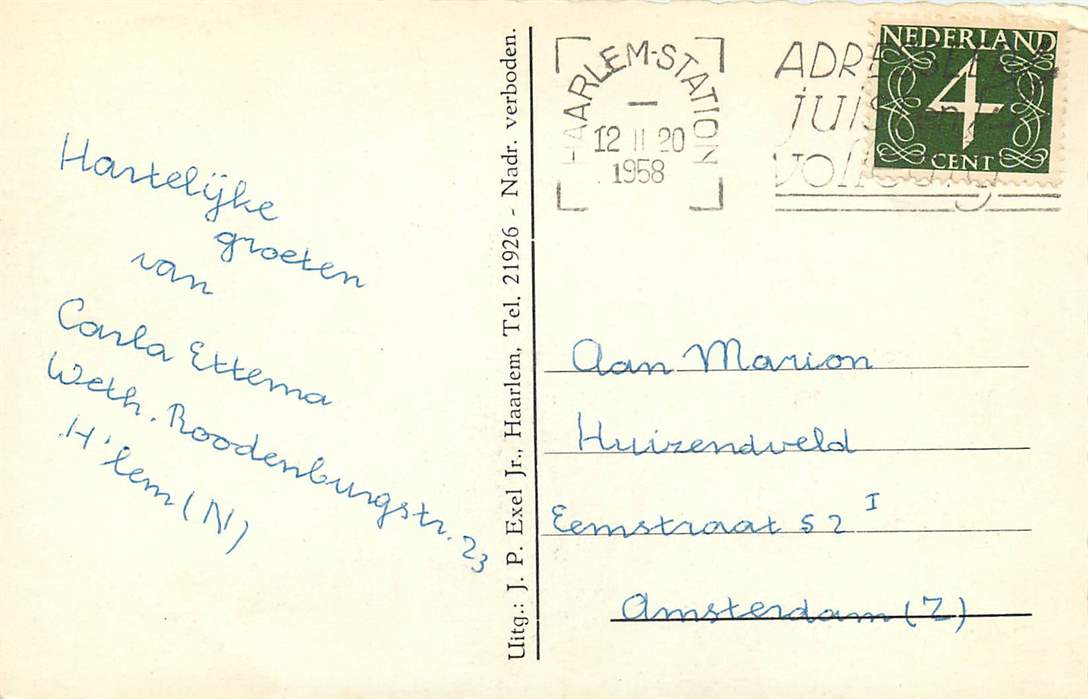 Hartelijke
groeten
van
Carla Ettema
Weth. Roodenburgstr. 23
H'lem (N)
Uitg.: J. P. Exel Jr., Haarlem, Tel. 21926 - Nadr. verboden.
HAARLEM-STATION
12 II 20
1958
NEDERLAND
4
CENT
Aan Marion
Huizendveld
Eemstraat 52 I
Amsterdam (Z)